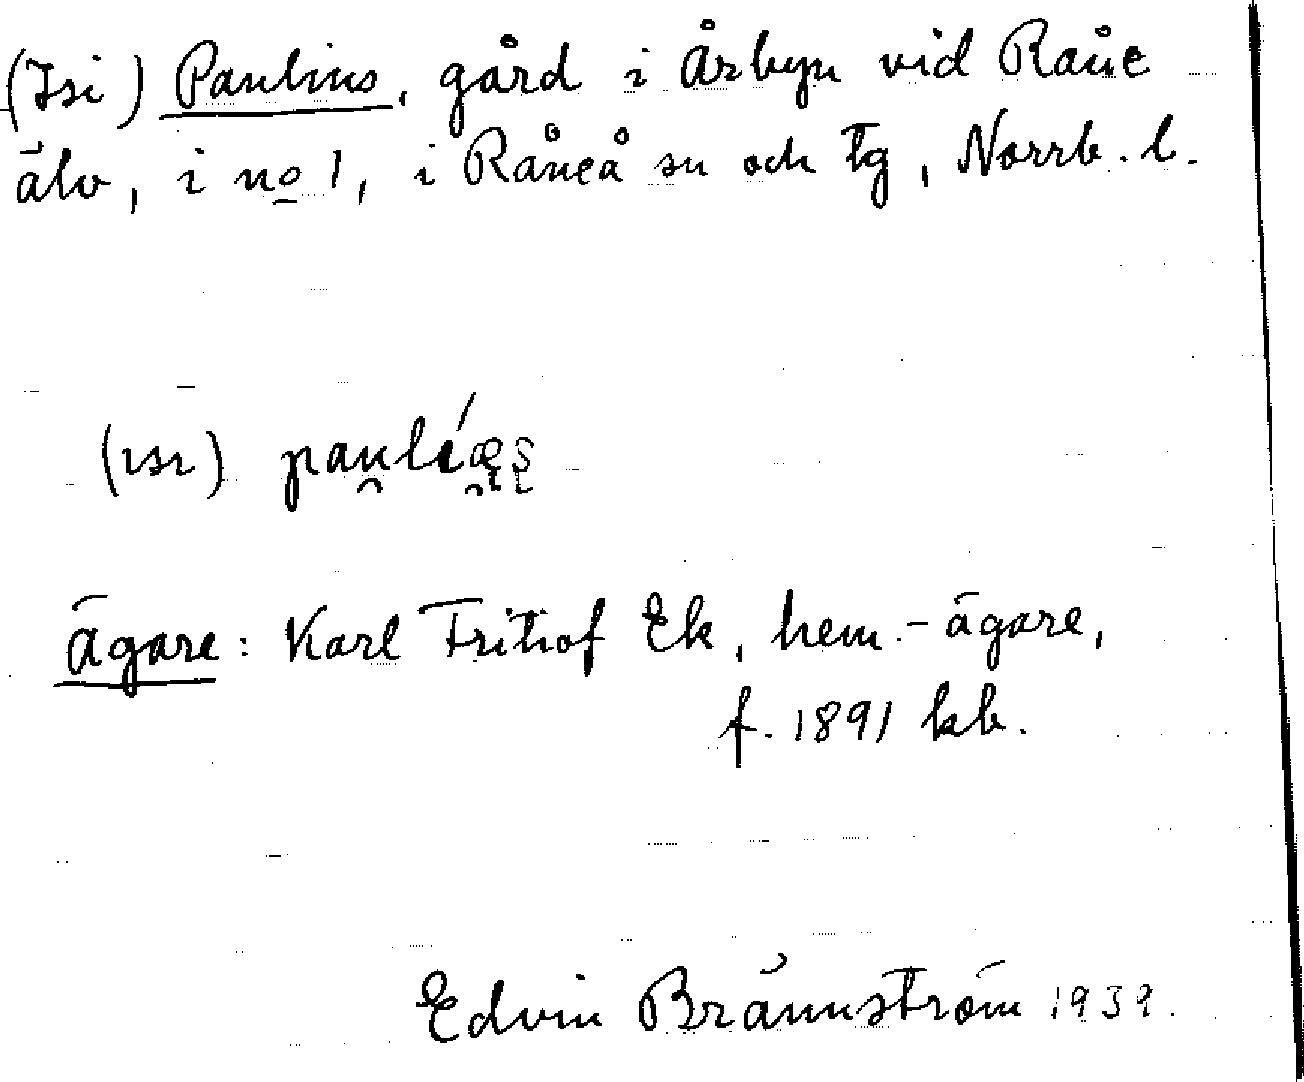 (Isi) Paulins, gård i Årbyn vid Råne
älv, i no 1, i Råneå sn och tg, Norrb. l.
(ısı)
Ägare: Karl Fritiof Ek, hem.-ägare,
f. 1891 kb.
Edvin Brännström 1939.